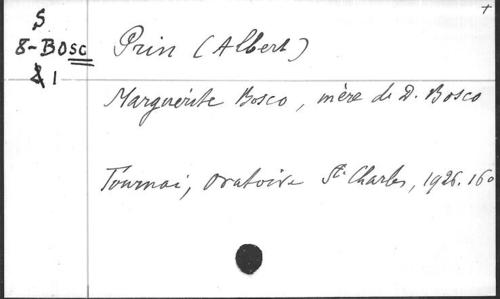 S
8-BOSC
1
Prin (Albert)
Marguerite Bosco, mère de D. Bosco
Tournai, Oratoire St. Charles, 1926. 16°